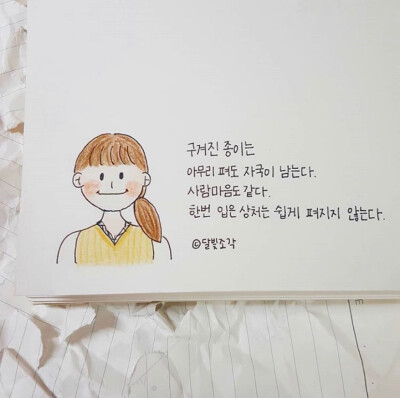 구겨진 종이는
아무리 펴도 자국이 남는다.
사람마음도 같다.
한번 입은 상처는 쉽게 펴지지 않는다.
©달빛조각